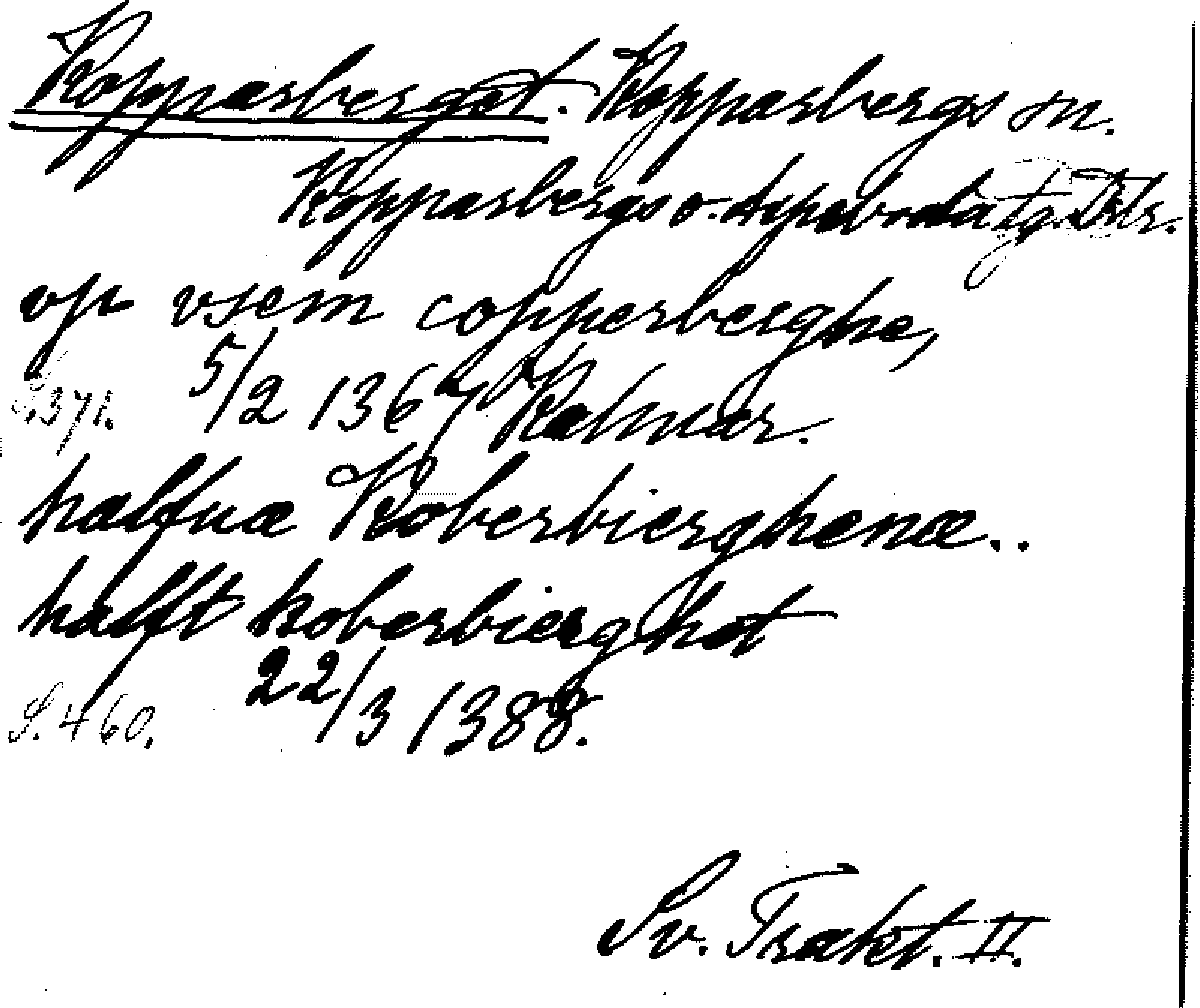 Kopparberget. Kopparbergs sn.
Kopparbergs o. Aspeboda tg. Dlr.
vp vsem copperberghe,
S. 371. 5/2 1367 Kalmar.
halfuæ Koberbierghenæ..
halfft koberbierghet
S. 460. 22/3 1388.
Sv. Trakt. II.